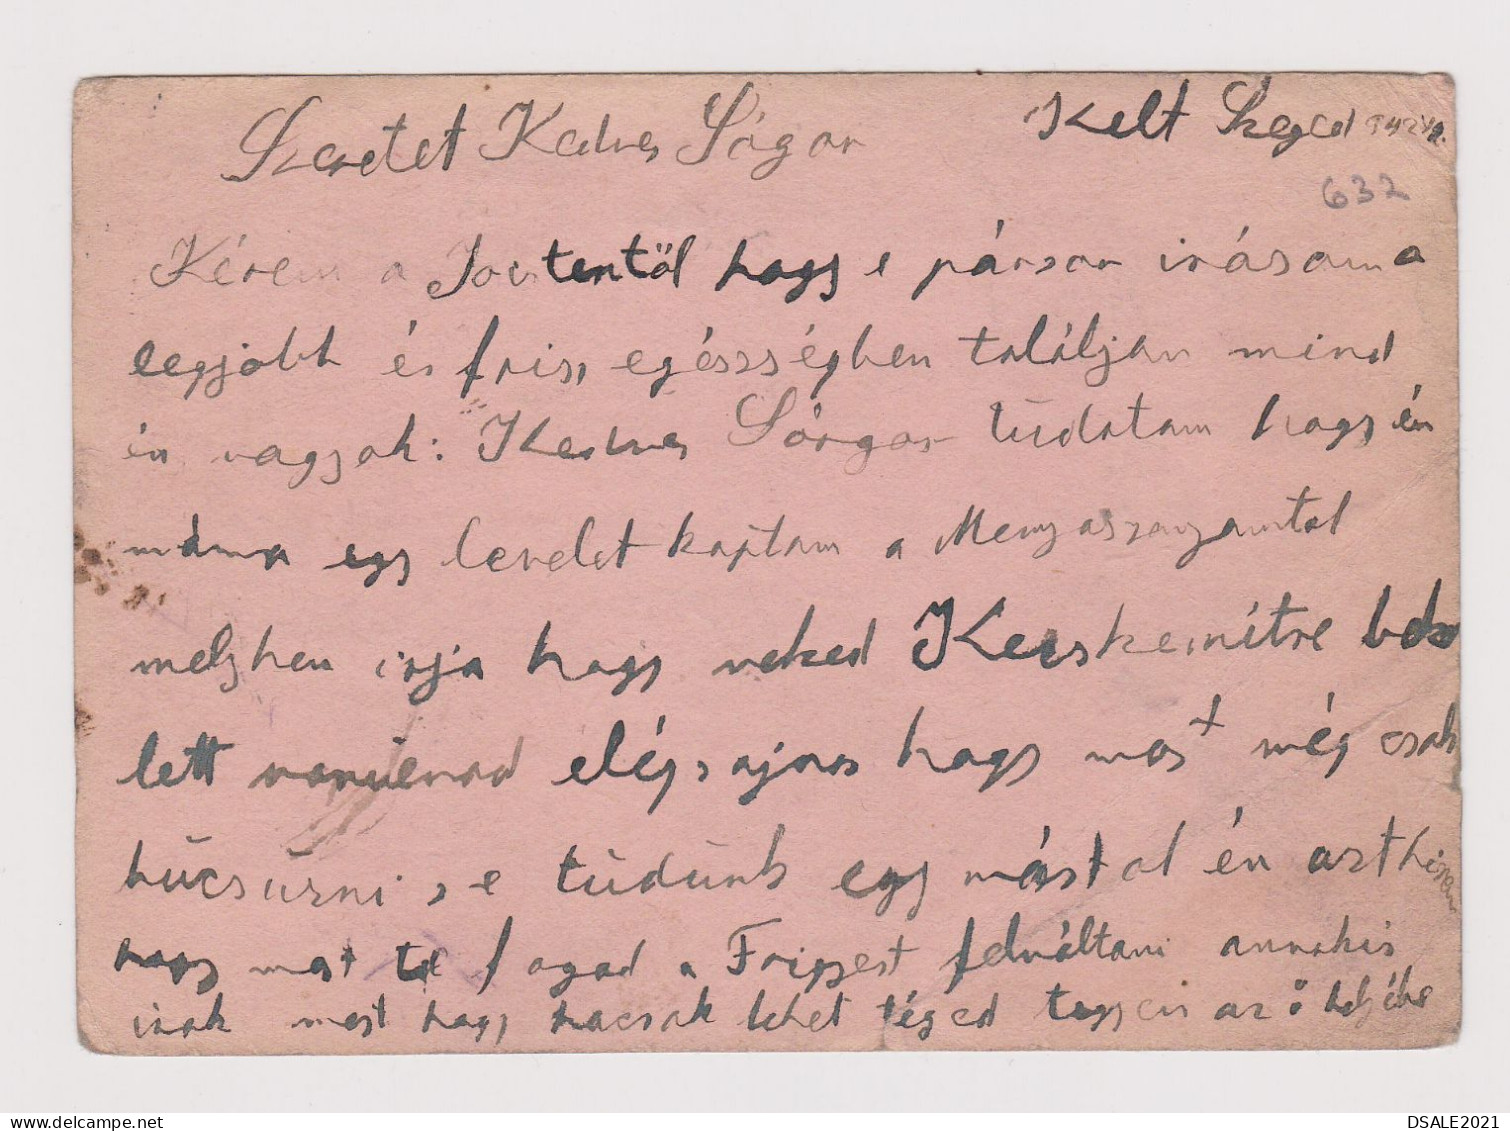 Szeretet Kedves Sógor Kelt Szeged
632
Kérem a Jóistentöl hogy e pársor irásom a
legjobb és friss egészségben találjon mind
én vagyok: Kedves Sógor tùdatom hogy én
máma egy levelet kaptam a Menyaszonyomtol
melyben irja hogy neked Kecskemétre be
lett elég sajnos hogy most még csak
bùcsùzni se tùdùnk egy mástol én azt hiszem
hogy most te fogod a Frigyest felváltani annakis
irok most hogy hacsak lehet téged tegyen az ö helyébe
DSALE2021